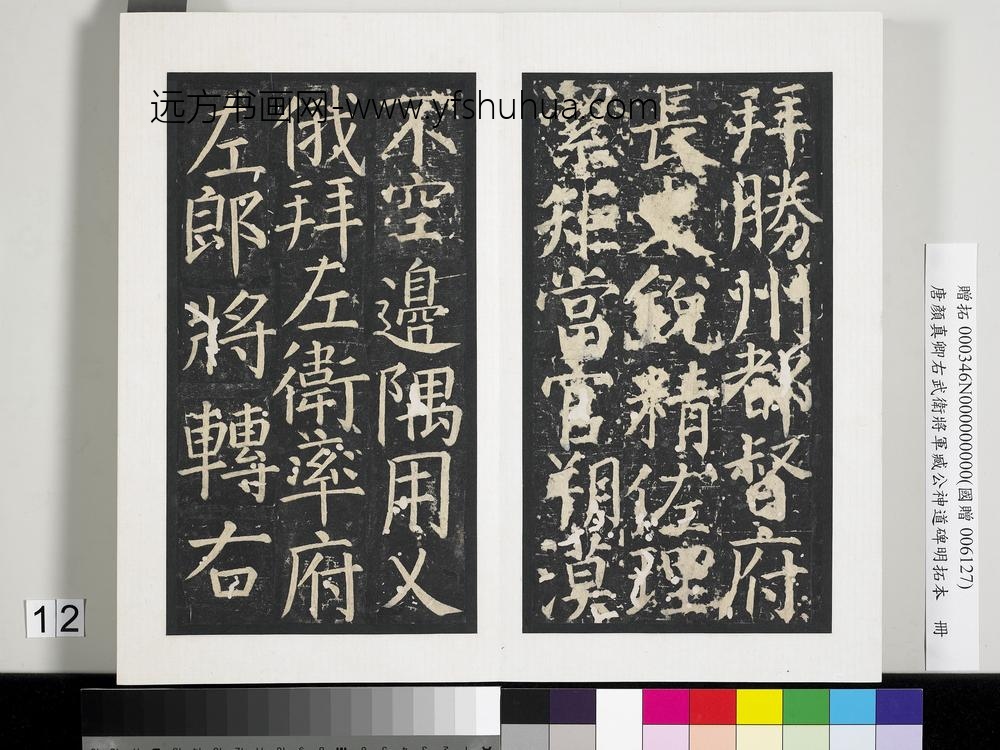 远方书画网-www.yfshuhua.com
拜勝州都督府
長史銳精佐理
絜矩當官朔漠
不空邊隅用乂
俄拜左衛率府
左郎將轉右
贈拓 000346N000000000(國贈 006127)
唐顏真卿右武衛將軍臧公神道碑明拓本 冊
12